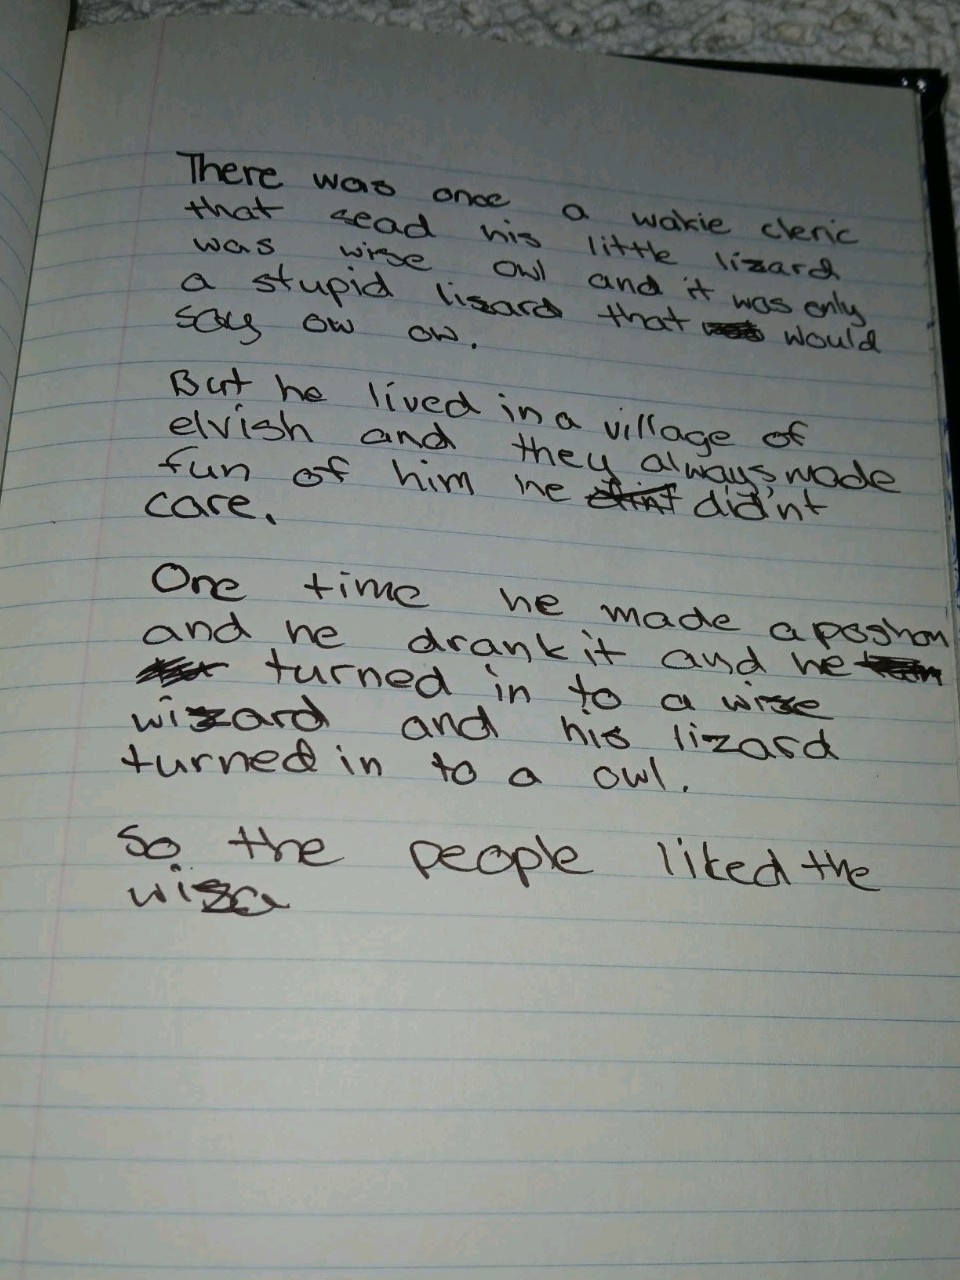 There was once a wakie cleric
that sead his little lizard
was wise owl and it was only
a stupid lisard that would
say ow ow.
But he lived in a village of
elvish and they always made
fun of him he didn't
care.
One time he made a poshon
and he drank it and he
turned in to a wise
wizard and his lizard
turned in to a owl.
So the people liked the
wiza